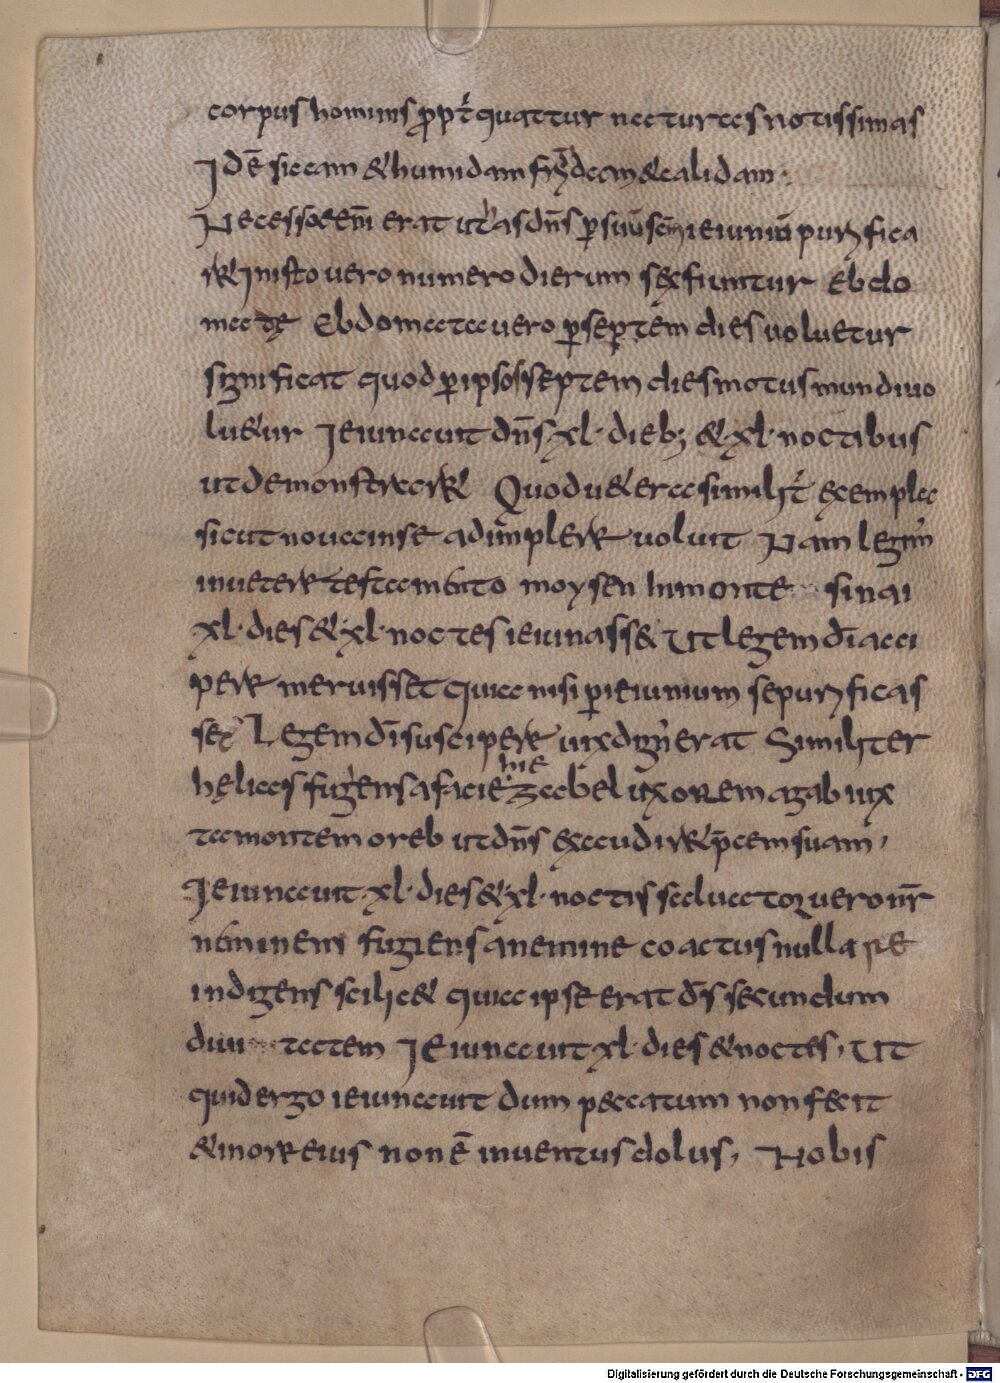 corpus hominis ꝓpt̄ quattur naturas notissimas
Id ē siccam & humidam frigidam & calidam
Necessarem erat ut as dn̄s ꝑ suū scm̄ ieiuniū purifica
re In isto vero numero dierum sex fiuntur ebdo
madę Ebdomata vero ꝑ septem dies voluetur
significat quod ꝑ ipsos septem dies motus mundi uo
lu&ur Ieiunauit dn̄s ·xl· dieb; & ·xl· noctibus
ut demonstrar& Quod u&era similit̄ exempla
sicut noua in se adimplere uoluit Nam legim
in uetere testamento moysen in monte sinai
xl· dies & ·xl· noctes ieiunass& Ut legem dī acci
pere meruisset quia nisi ꝑ ieiunium se purificas
set Legem dī suscipere uix dign erat Similiter
helias fugens a facie hiezabel uxorem agab iux
ta montem oreb ut dn̄s exaudir& p̄cem suam,
Ieiunauit ·xl· dies & ·xl· noctis saluator vero nr̄
neminem fugiens a nemine coactus nulla re
indigens scilic& quia ipse erat dī secundum
diui tatem Ieiunauit xl· dies & noctes, Ut
quid ergo ieiunauit dum peccatum non fecit
& in ore eius non ē inuentus dolus, Nobis
Digitalisierung gefördert durch die Deutsche Forschungsgemeinschaft - DFG